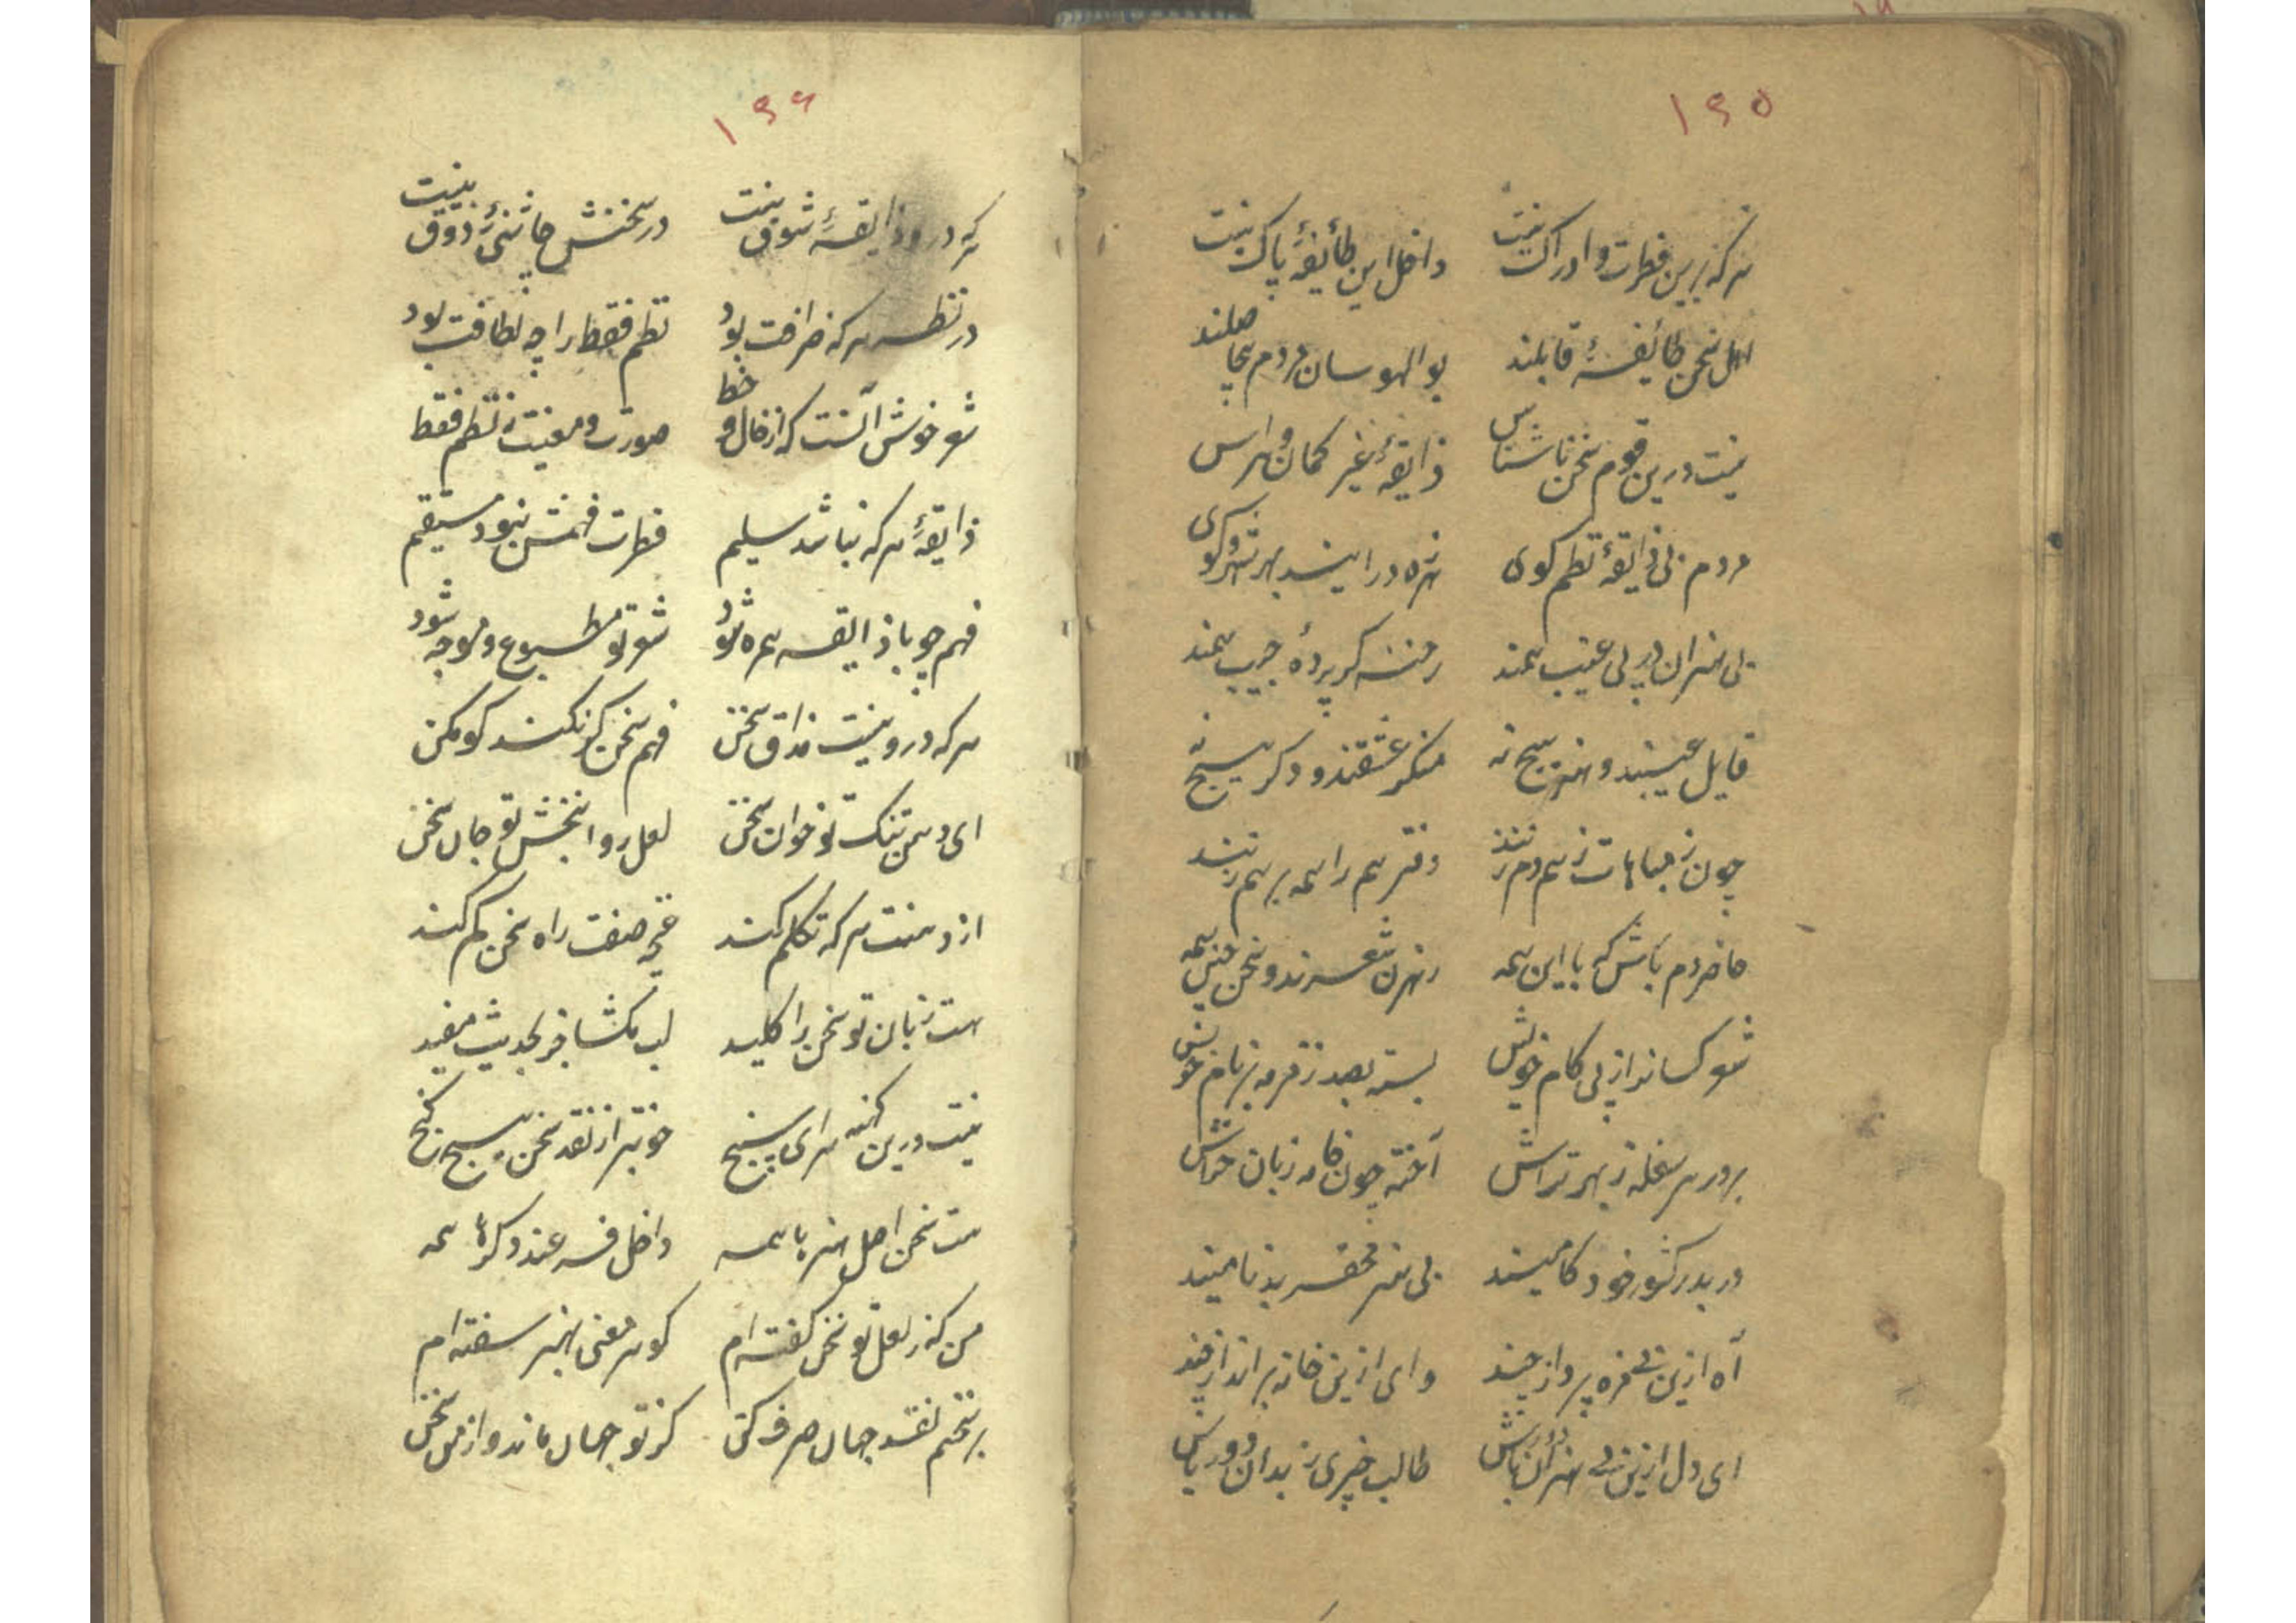 ۱۶۵
هر که برین فطرت و ادراک نیست داخل این طائفهٔ پاک نیست
اهل سخن طائفهٔ قابلند بوالهوسان مردم بیحاصلند
نیست درین قوم سخن ناشناس ذایقهٔ غیر کمان و هراس
مردم بی ذایقهٔ نظم کوی هرزه درایند بهر شهر و کوی
بی هنران در پی عیب همند رخنه کر پردهٔ جیب همند
قایل عیبند و هنر هیچ نه منکر عشقند و دکر هیچ نه
چون ز مباهات ز هم دم زنند دفتر هم را همه بر هم زنند
حاضر دم باش که با این همه رهزن شعرند و سخن چین همه
شعر کسانند از پی کام خویش بسته بصد زمزمه بر نام خویش
بر در هر سفله ز بهر تراش آخته چون خامه زبان خراش
در بدر کشور خود کامیند بی هنر محضر بدنامیند
آه ازین بیمزه پرداز چند وای ازین خانه برانداز چند
ای دل ازین بی هنران باش طالب خیری ز بدان دور باش
۱۶۶
هر که درو ذایقهٔ شوق نیست در سخنش چاشنئ ذوق نیست
در نظر هر که ظرافت بود نظم فقط را چه لطافت بود
شعر خوش آنست که از خال و خط صورت و معنیست نه نظم فقط
ذایقهٔ هر که نباشد سلیم فطرت فهمش نبود مستقیم
فهم چو با ذایقه همره شود شعر تو مطبوع و موجه شود
هر که درو نیست مذاق سخن فهم سخن کر نکند کو مکن
ای دهن تنک تو خوان سخن لعل روانبخش تو جان سخن
از دهنت هر که تکلم کند غنچه صفت راه سخن کم کند
هست زبان تو سخن را کلید لب مکشا جز بحدیث مفید
نیست درین کهنه سرای سپنج خوبتر از نقد سخن هیچ کنج
هست سخن اصل هنرها همه داخل فرعند دکرها همه
من که ز لعل تو سخن کفته ام کوهر معنی بهنر سفته ام
بر سخنم نقد جهان صرف کن کز تو جهان ماند و از من سخن